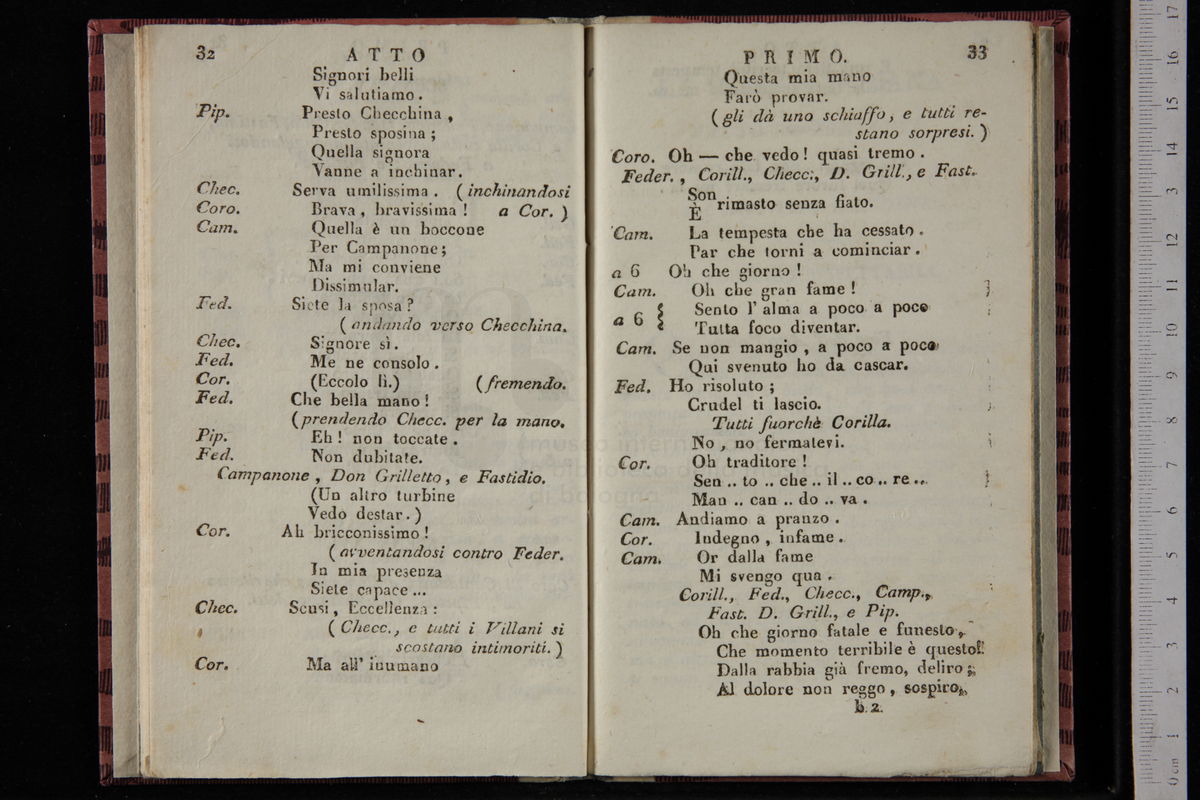 32 ATTO
Signori belli
Vi salutiamo.
Pip. Presto Checchina,
Presto sposina;
Quella signora
Vanne a inchinar.
Chec. Serva umilissima. (inchinandosi
Coro. Brava, bravissima! a Cor.)
Cam. Quella è un boccone
Per Campanone;
Ma mi conviene
Dissimular.
Fed. Siete la sposa?
(andando verso Checchina.
Chec. Signore sì.
Fed. Me ne consolo.
Cor. (Eccolo lì.) (fremendo.
Fed. Che bella mano!
(prendendo Checc. per la mano.
Pip. Eh! non toccate.
Fed. Non dubitate.
Campanone, Don Grilletto, e Fastidio.
(Un altro turbine
Vedo destar.)
Cor. Ah bricconissimo!
(avventandosi contro Feder.
In mia presenza
Siete capace...
Chec. Scusi, Eccellenza:
(Checc., e tutti i Villani si
scostano intimoriti.)
Cor. Ma all' inumano
PRIMO. 33
Questa mia mano
Farò provar.
(gli dà uno schiaffo, e tutti re-
stano sorpresi.)
Coro. Oh — che vedo! quasi tremo.
Feder., Corill., Checc., D. Grill., e Fast.
Son
È rimasto senza fiato.
Cam. La tempesta che ha cessato.
Par che torni a cominciar.
a 6 Oh che giorno!
Cam. Oh che gran fame!
a 6 { Sento l'alma a poco a poco
Tutta foco diventar.
Cam. Se non mangio, a poco a poco
Qui svenuto ho da cascar.
Fed. Ho risoluto;
Crudel ti lascio.
Tutti fuorchè Corilla.
No, no fermatevi.
Cor. Oh traditore!
Sen .. to .. che .. il .. co .. re ..
Man .. can .. do .. va.
Cam. Andiamo a pranzo.
Cor. Indegno, infame.
Cam. Or dalla fame
Mi svengo qua.
Corill., Fed., Checc., Camp.,
Fast. D. Grill., e Pip.
Oh che giorno fatale e funesto,
Che momento terribile è questo!
Dalla rabbia già fremo, deliro;
Al dolore non reggo, sospiro,
b. 2.